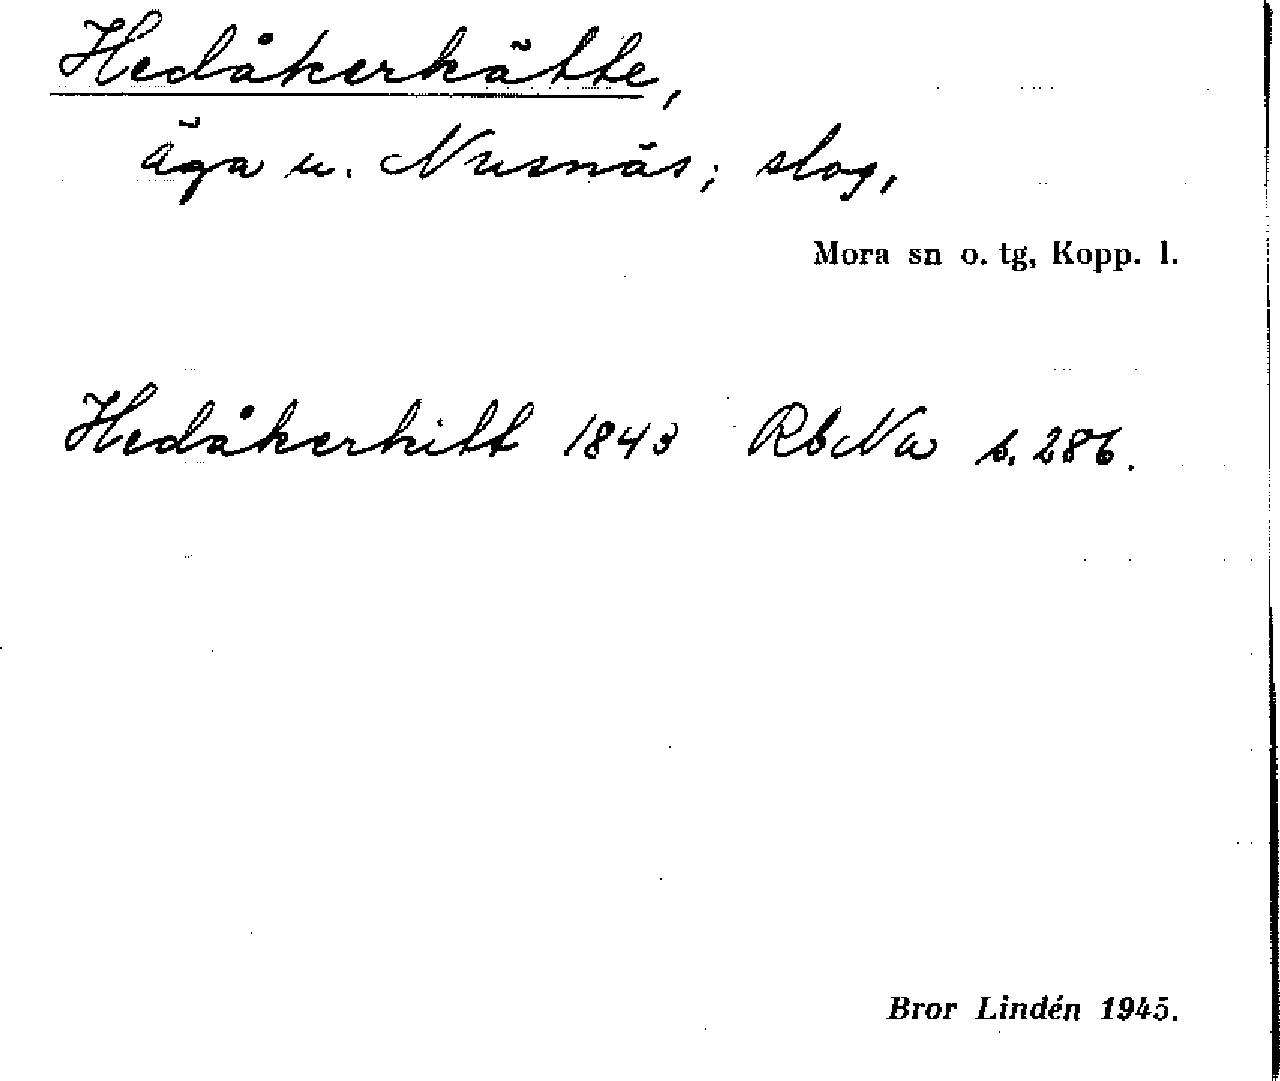 Hedåkerkätte,
äga u. Nusnäs; slog,
Mora sn o. tg, Kopp. l.
Hedåkerkitt 1843 RbNa s. 286.
Bror Lindén 1945.